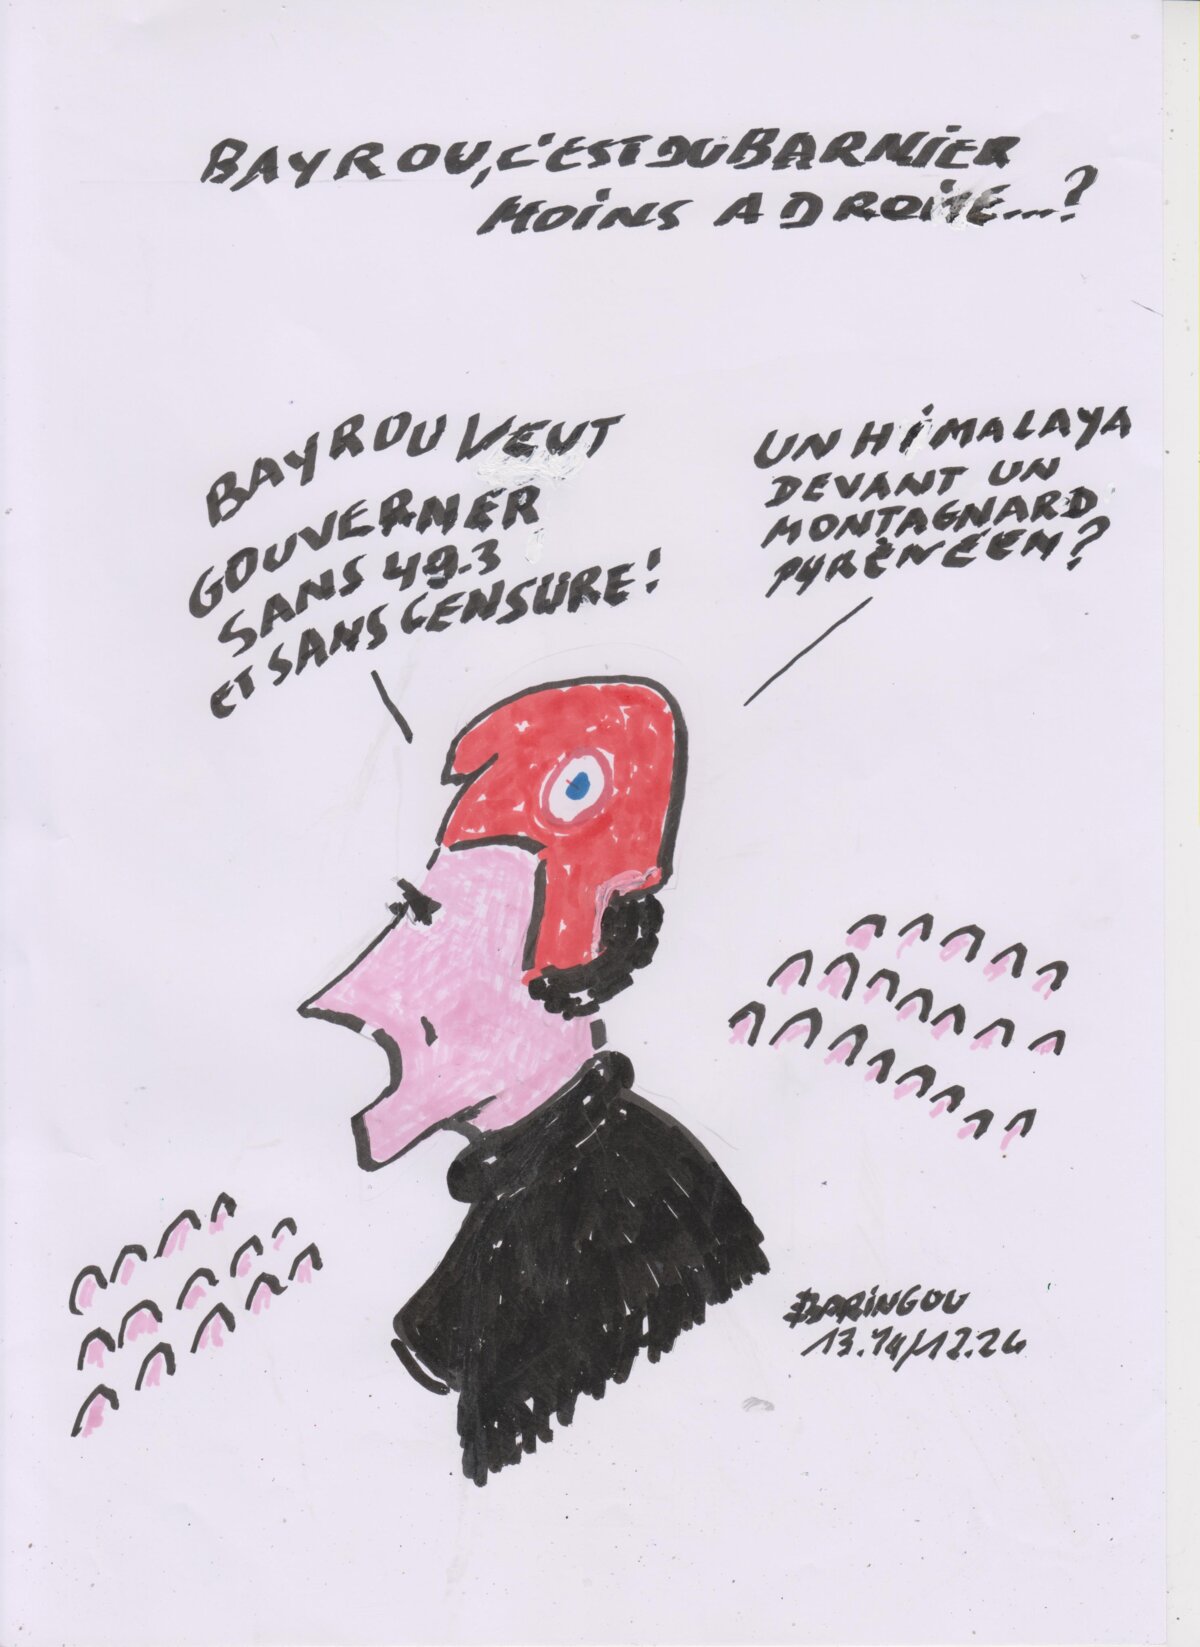 BAYROU, C'EST DU BARNIER
MOINS A DROITE...?
BAYROU VEUT
GOUVERNER
SANS 49.3
ET SANS CENSURE!
UN HIMALAYA
DEVANT UN
MONTAGNARD
PYRÈNÉEN?
BARINGOU
13.14/12.24